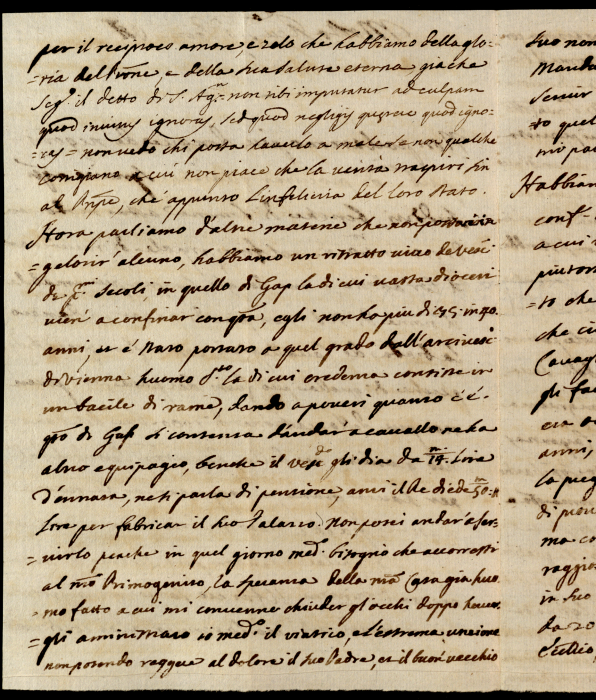 per il reciproco amore, e zelo che habbiamo della glo-
=ria del Prnne, e della sua salute eterna già che
Seg.^o il detto di S. Ag.^o non tibi imputatur ad culpam
quod invitus ignoras, sed quod negligis querere quod igno-
ras = non vedo chi possa haverlo a male se non qualche
cortigiano a cui non piace che la verità traspiri sin
al Pnpe, ch'è appunto l'infelicità del loro stato.
Hora parliamo d'altre materie che non possono in-
=gelosir' alcuno, habbiamo un ritratto vivo de Vesci
de p.^mi secoli, in quello di Gap la di cui vasta diocesi
vien' a confinar con qta, egli non ha più di 35 in 40
anni, et è stato portato a quel grado dall'Arcivesc
di Vienna huomo la di cui credenza consiste in
un bacile di rame, dando a poveri quanto c'è.
qto di Gap si contenta d'andar a cavallo ne ha
altro equipagio, benche il Vesc.^do gli dia da 14.^m lire
d'entrata, ne si parla di pensione, anzi il Re diede 50.^m
Lire per fabricar il suo Palazzo. Non potei andar'a ser-
=virlo perche in quel giorno med.^o bisognò che accorressi
al nro Primogenito, la speranza della nra Casa già huo-
mo fatto a cui mi convenne chiuder gl'occhi doppo haver-
=gli amministrato io med.^o il viatico, e l'estrema unzione
non potendo reggere al dolore il suo Padre, et il buon vecchio
suo non
Manda
servir
=to quel
mi pa
Habbiam
conf
a cui
piutos
=to che
che ci
Cavag
gli fa
era
anni,
la preg
di
ma co
raggio
in suo
da 20